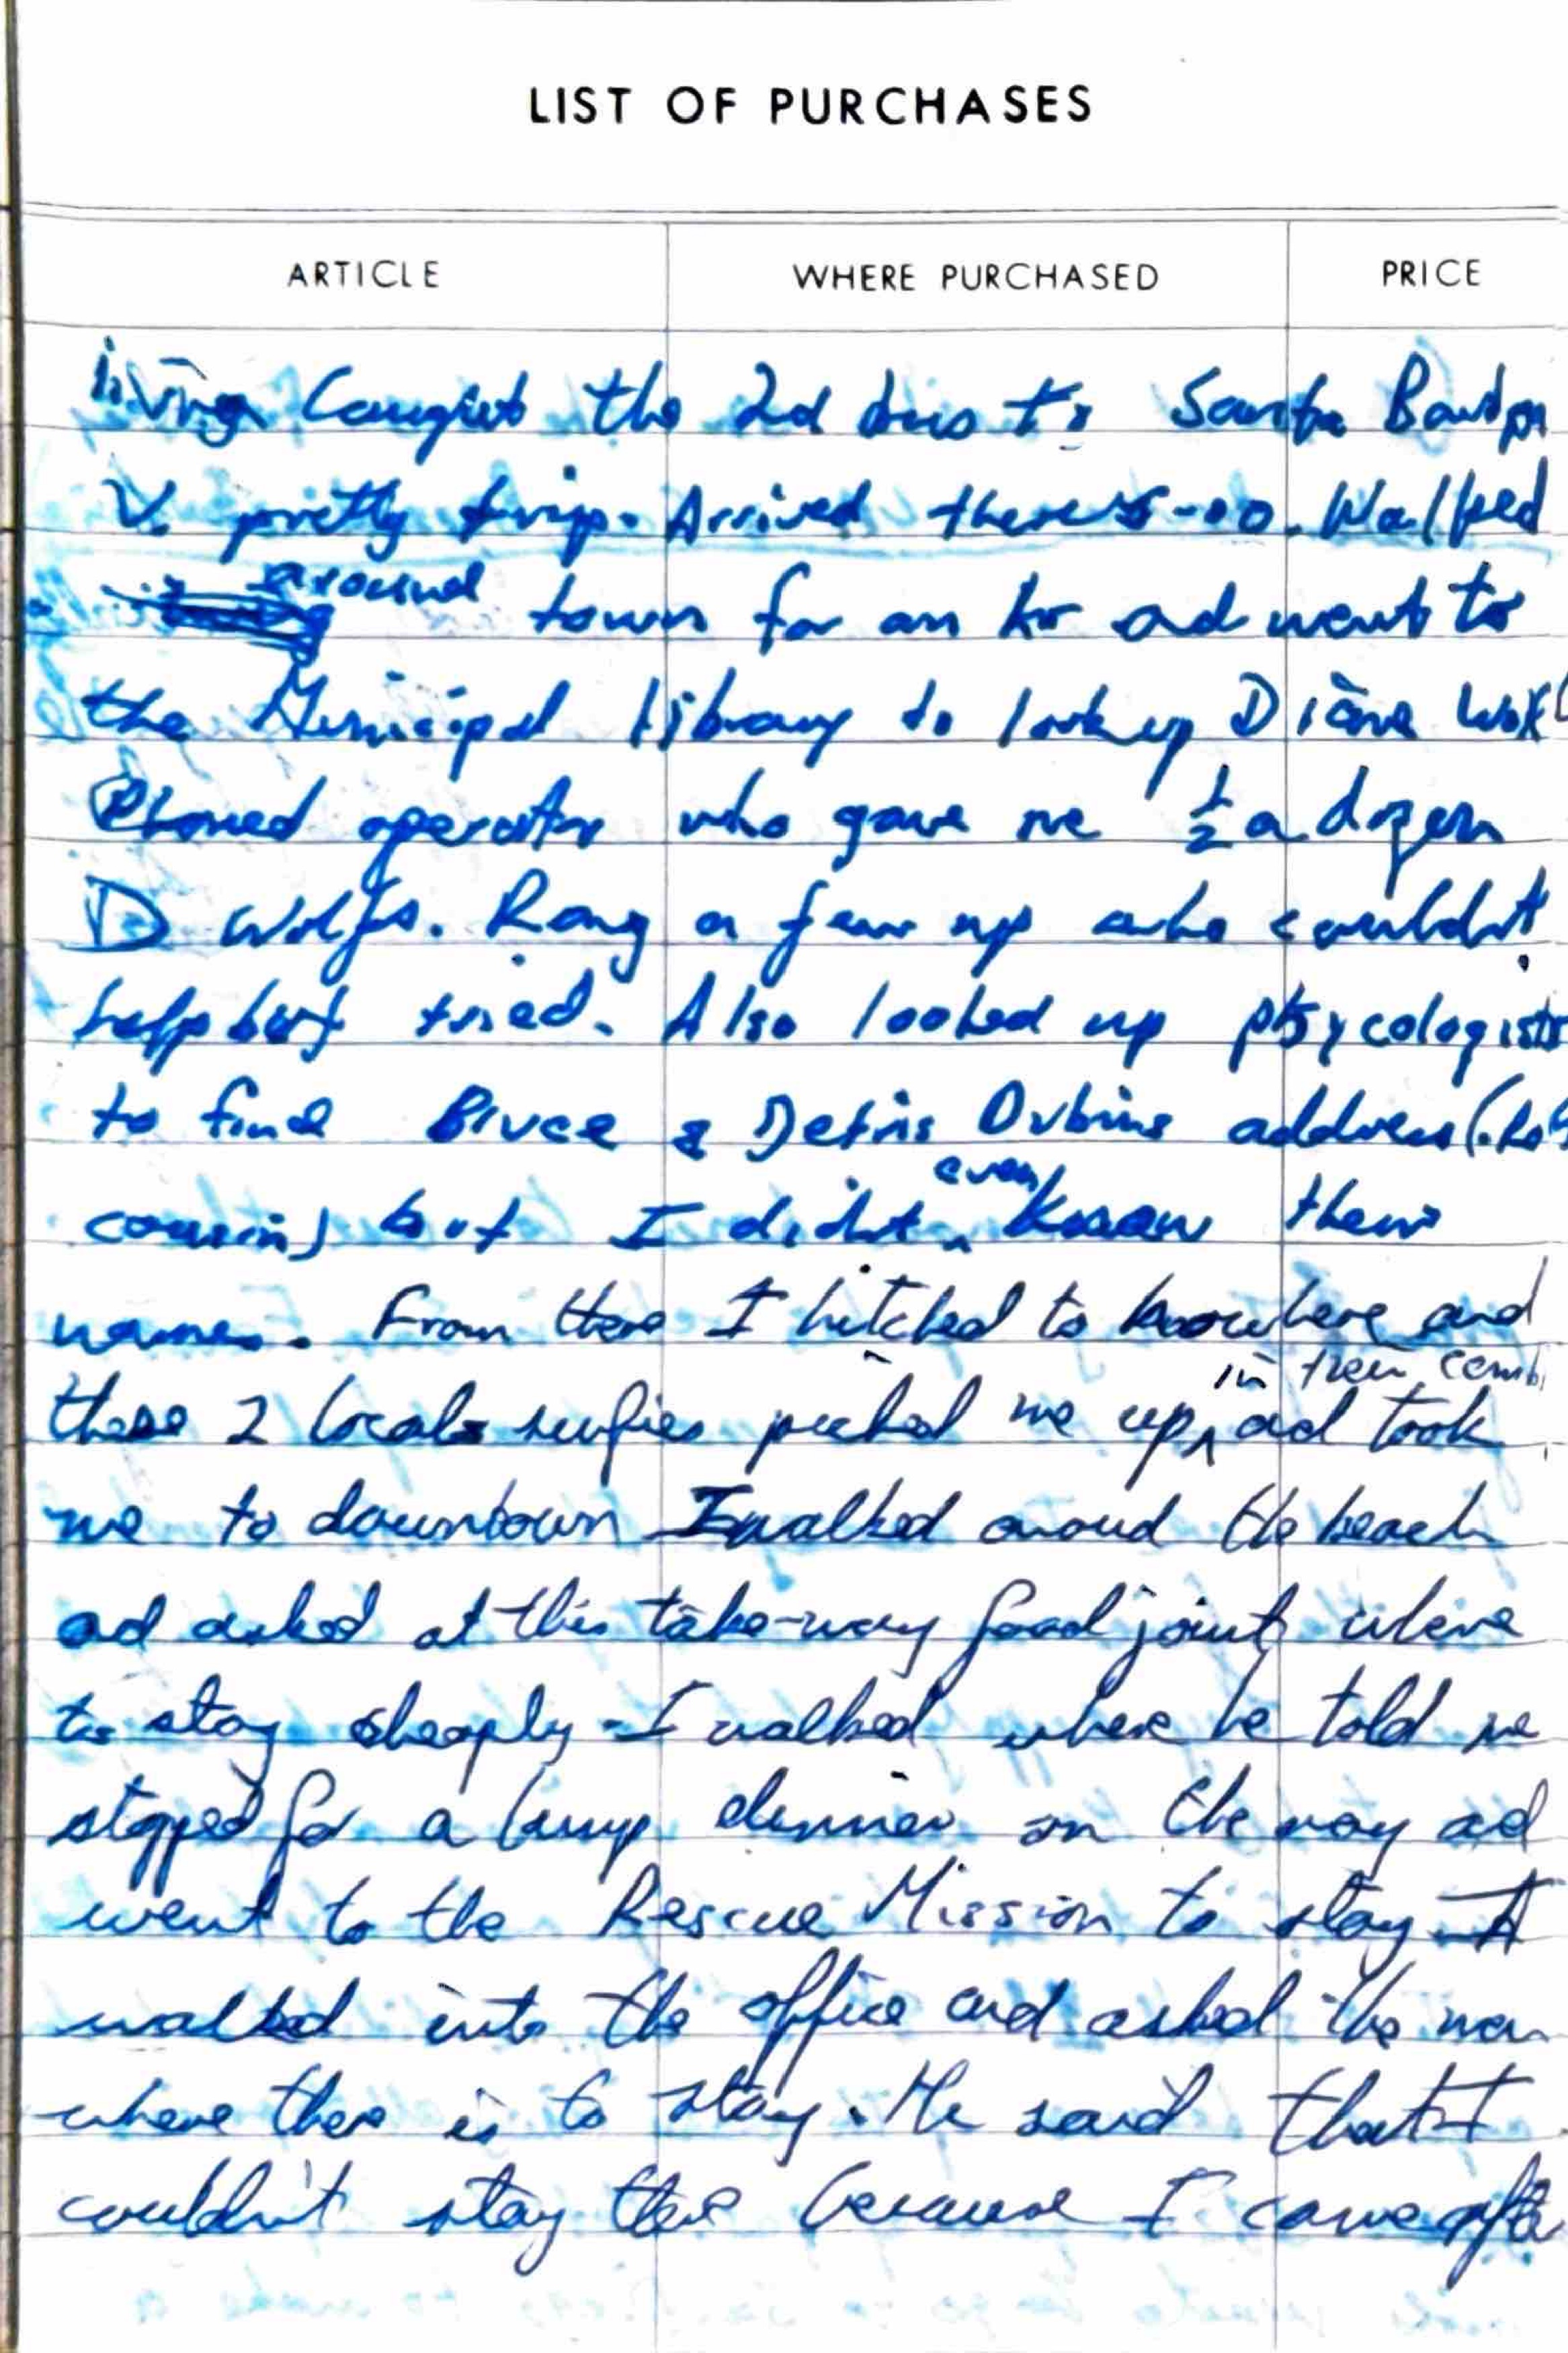 LIST OF PURCHASES
ARTICLE WHERE PURCHASED PRICE
living Caught the 2d bus to Santa
V. pretty trip. Arrived there 5-00. Walked
around
town for an hr ad went to
the Municipal library to look up Diane
Phoned operator who gave me ½ a dozen
D Wolfs. Rang a few up who couldn't
help but tried. Also looked up psycologists
to find Bruce & address
cousin) but I didnt even know their
names. From there I hitched to and
in their
these 2 locals surfies picked me up ad took
me to downtown I walked around the beach
ad asked at this take-way food joint where
to stay cheaply - I walked where he told me
stopped for a dinner on the way ad
went to the Rescue Mission to stay. I
walked into the office and asked the man
where there is to stay. He said that I
couldn't stay there because I came after